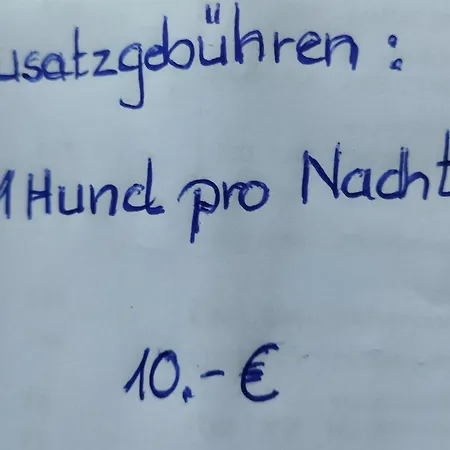 usatzgebühren :
1 Hund pro Nacht
10.- €